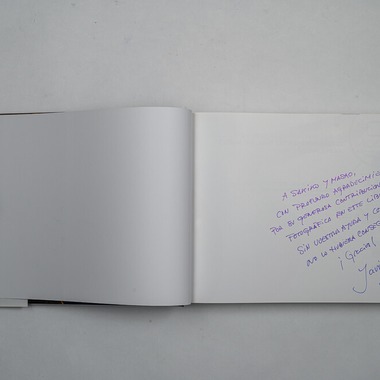 A SAKIKO Y MASAO,
CON PROFUNDO AGRADECIMIENTO
POR SU GENEROSA CONTRIBUCIÓN
FOTOGRÁFICA EN ESTE LIBRO
SIN VUESTRA AYUDA Y
NO LO HUBIERA
¡GRACIAS!
Javi